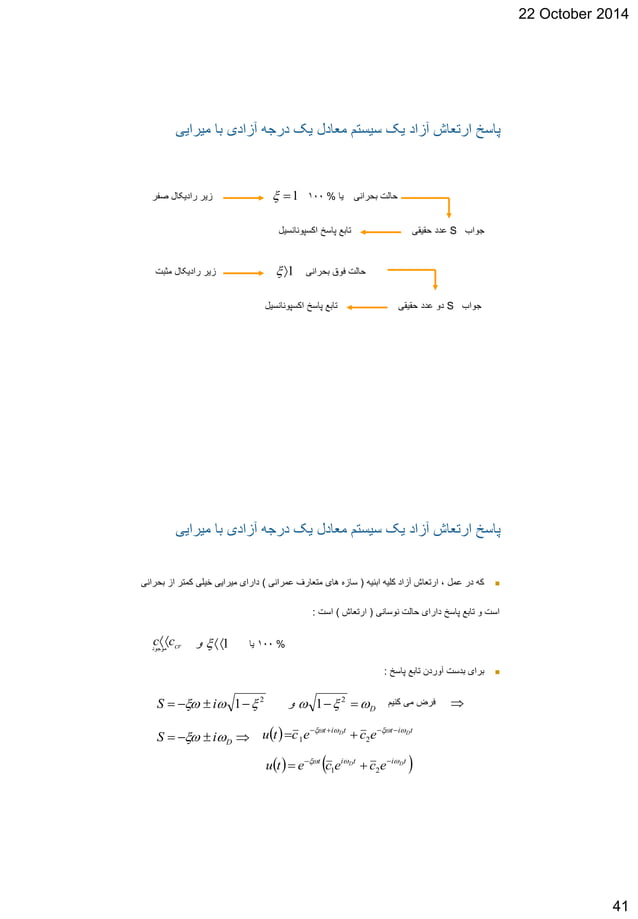 22 October 2014
پاسخ ارتعاش آزاد یک سیستم معادل یک درجه آزادی با میرایی
حالت بحرانی یا % ۱۰۰ ξ = 1 زیر رادیکال صفر
جواب S عدد حقیقی تابع پاسخ اکسپونانسیل
حالت فوق بحرانی ξ⟩1 زیر رادیکال مثبت
جواب S دو عدد حقیقی تابع پاسخ اکسپونانسیل
پاسخ ارتعاش آزاد یک سیستم معادل یک درجه آزادی با میرایی
که در عمل ، ارتعاش آزاد کلیه ابنیه ( سازه های متعارف عمرانی ) دارای میرایی خیلی کمتر از بحرانی
است و تابع پاسخ دارای حالت نوسانی ( ارتعاش ) است :
% ۱۰۰ یا ξ⟨⟨1 و c موجود ⟨⟨c_cr
برای بدست آوردن تابع پاسخ :
⇒ فرض می کنیم ω√(1−ξ²) = ω_D و S = −ξω ± iω√(1−ξ²)
S = −ξω ± iω_D ⇒ u(t) = c̄₁e^(−ξωt+iω_D t) + c̄₂e^(−ξωt−iω_D t)
u(t) = e^(−ξωt)(c̄₁e^(iω_D t) + c̄₂e^(−iω_D t))
41